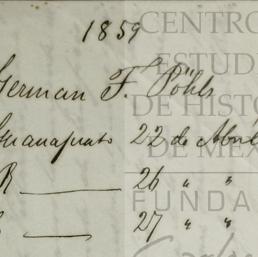 1859
German F. Pöhls
Guanajuato 22 de Abril
R — 26 " "
C — 27 " "
CENTRO
ESTUD
DE HISTO
DE MÉX
FUNDA